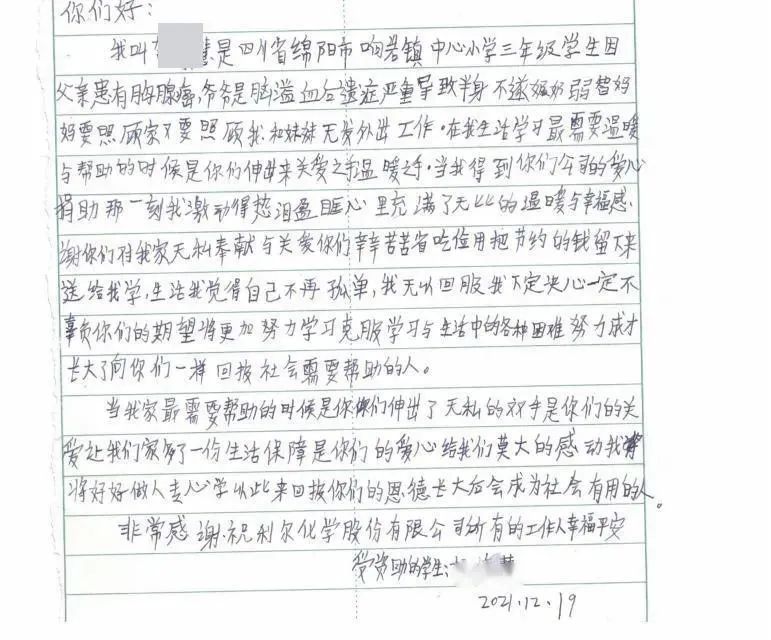 你们好：
我叫 慧是四川省绵阳市响岩镇中心小学三年级学生因
父亲患有胸腺癌，爷爷是脑溢血后遗症严重导致半身不遂奶奶弱智妈
妈要照顾家又要照顾我和妹妹无发外出工作。在我生活学习最需要温暖
与帮助的时候是你们伸出来关爱之手温暖之手。当我得到你们公司的爱心
捐助那一刻我激动得热泪盈眶心里充满了无比的温暖与幸福感.
谢你们对我家无私奉献与关爱你们辛辛苦苦省吃俭用把节约的钱留下来
送给我学,生活我觉得自己不再孤单,我无以回报我下定决心一定不
辜负你们的期望将更加努力学习克服学习与生活中的各种困难努力成才
长大了向你们一样回报社会需要帮助的人。
当我家最需要帮助的时候是你们伸出了无私的双手是你们的关
爱让我们家多了一份生活保障是你们的爱心给我们莫大的感动我
将好好做人专心学以此来回报你们的恩德长大后会成为社会有用的人。
非常感谢.祝利尔化学股份有限公司所有的工作人幸福平安
受资助的学生:
2021.12.19